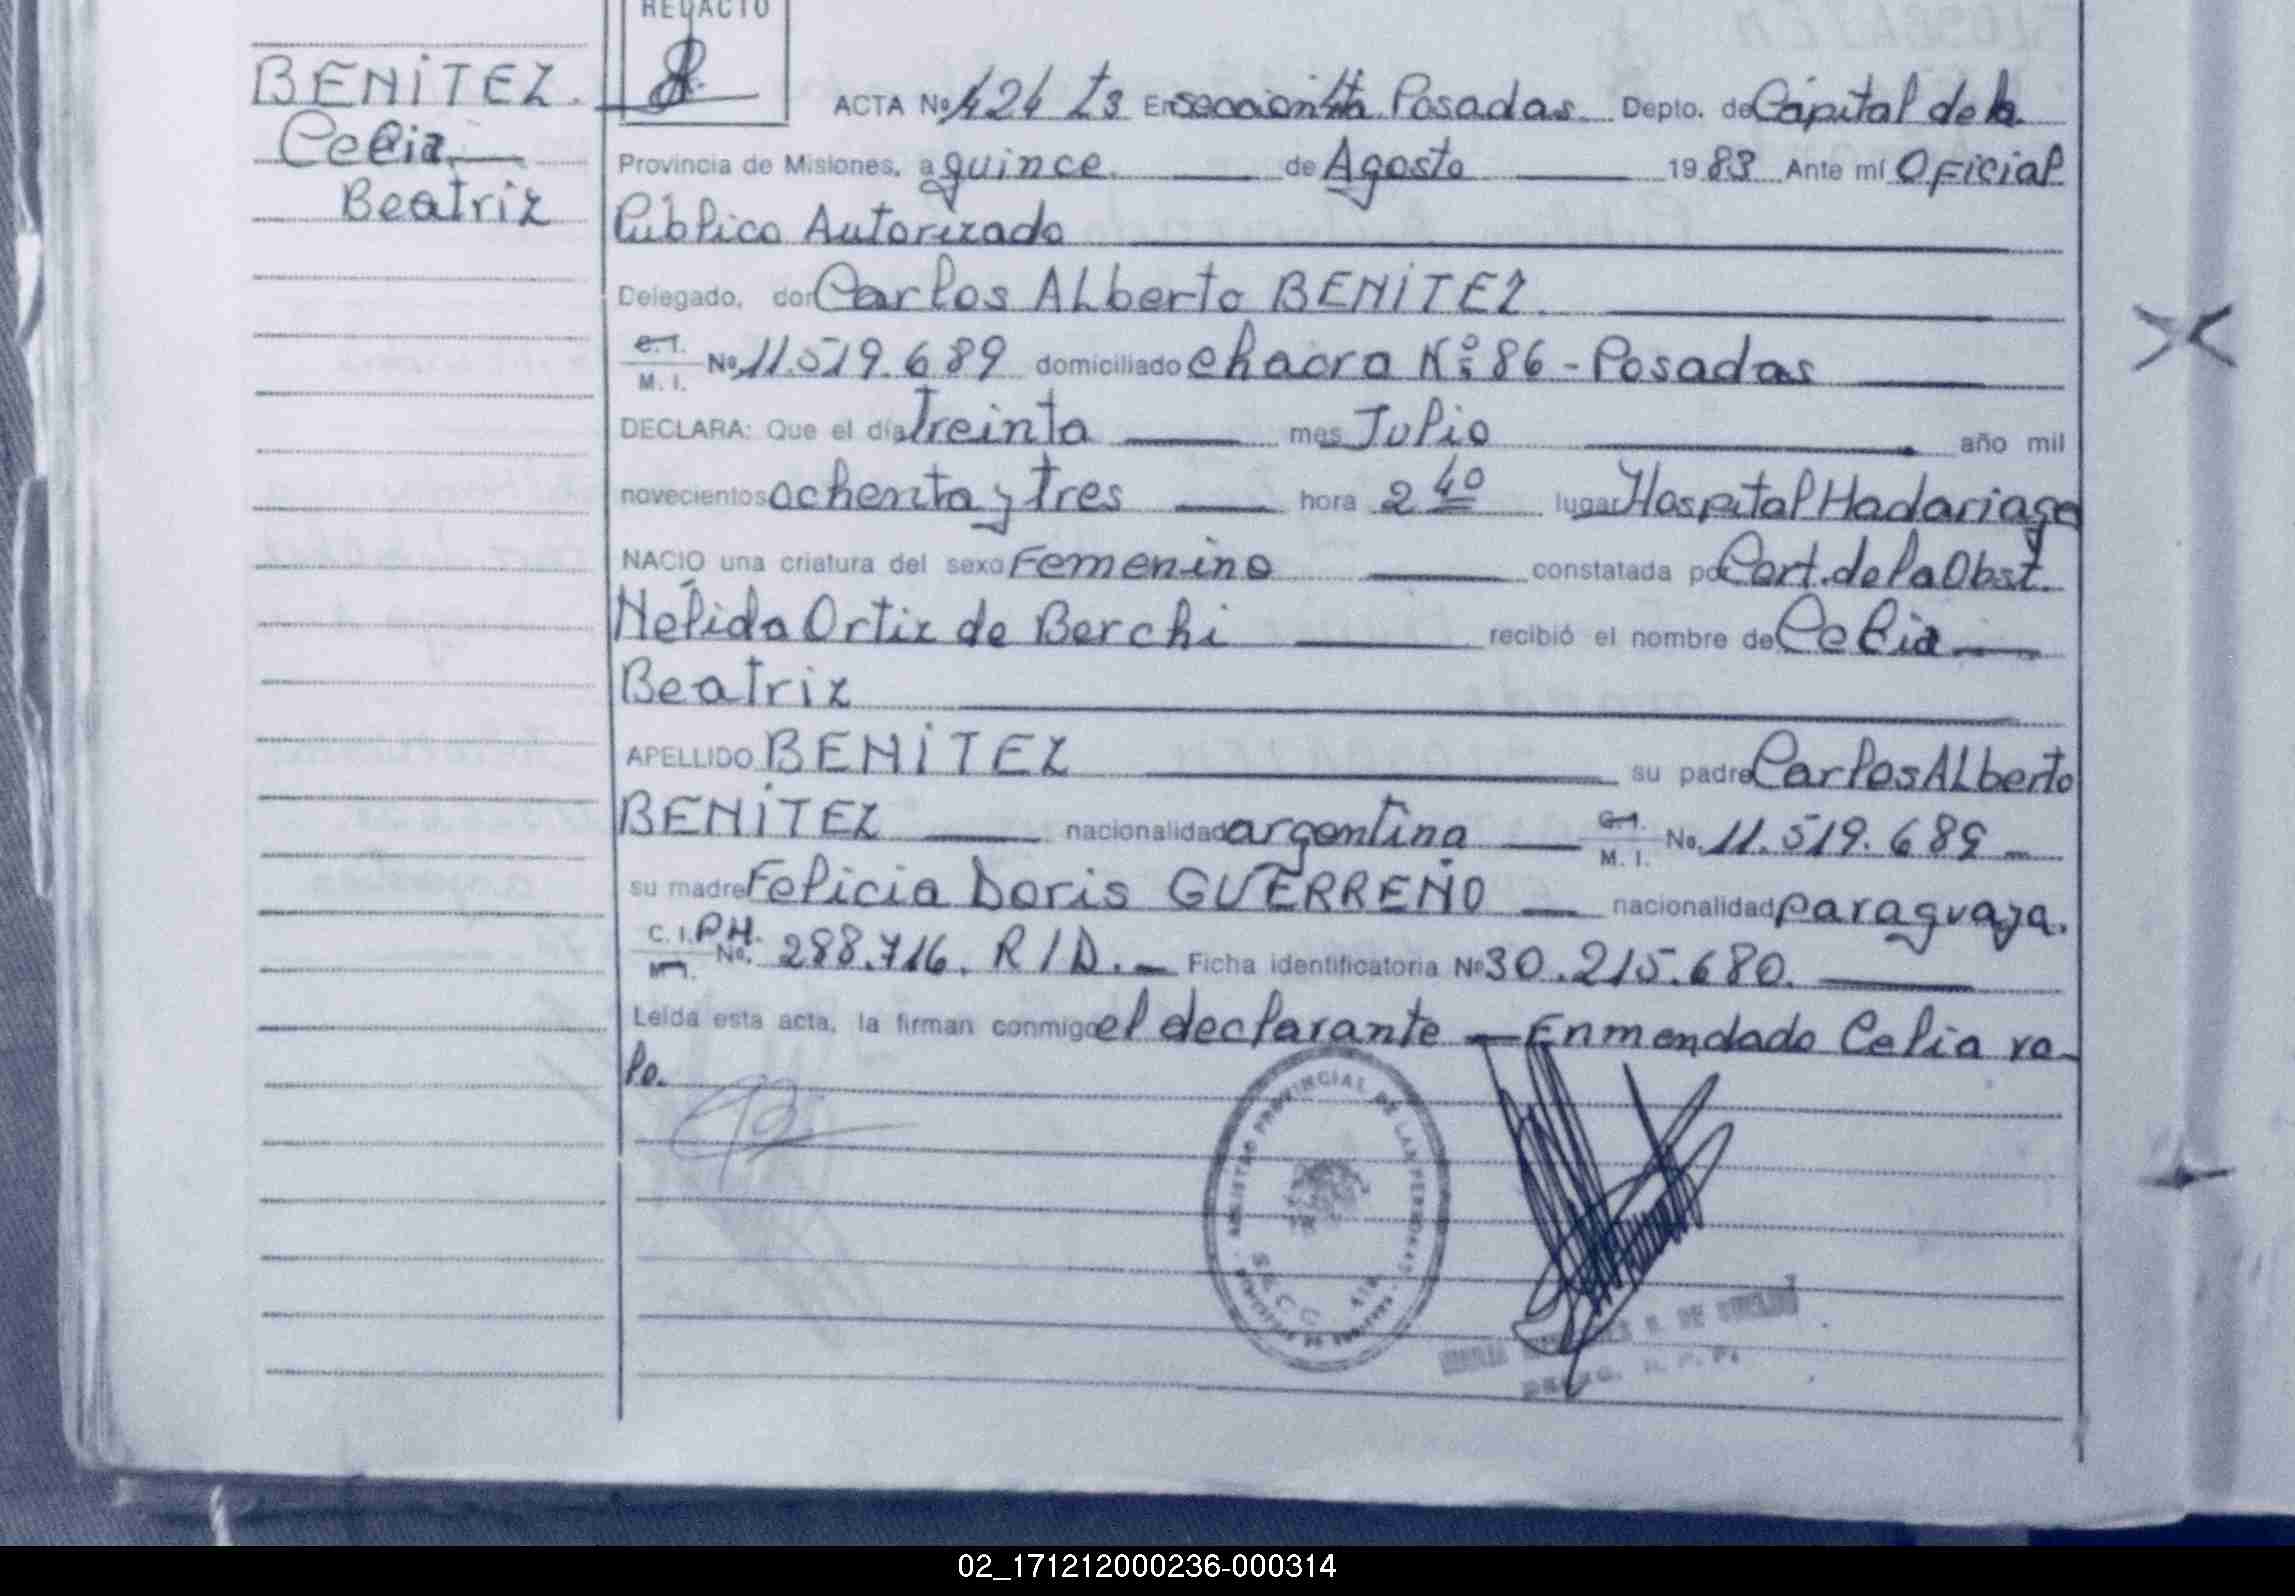 REDACTO
BENÍTEZ.
Celia
Beatriz
ACTA Nº 424 Ts En sección 4ta Posadas. Depto. de Capital de la
Provincia de Misiones, a quince. de Agosto 1983 Ante mí Oficial
Público Autorizado
Delegado, don Carlos ALberto BENÍTEZ.
C.I. M.I. Nº 11.519.689 domiciliado chacra Nº 86 - Posadas
DECLARA: Que el día Treinta mes Julio año mil
novecientos ochenta y tres hora 2 40 lugar Hospital Madariaga
NACIO una criatura del sexo Femenino constatada por Cert. de la Obst.
Nélida Ortiz de Berchi recibió el nombre de Celia
Beatriz
APELLIDO BENÍTEZ su padre Carlos ALberto
BENÍTEZ nacionalidad argentina C.I. M.I. No. 11.519.689
su madre Felicia Doris GUERREÑO nacionalidad paraguaya.
C.I. M.I. No. 288.716. R/D. Ficha identificatoria Nº 30.215.680.
Leída esta acta, la firman conmigo el declarante — Enmendado Celia va-
le.
REGISTRO PROVINCIAL DE LAS PERSONAS
02_171212000236-000314